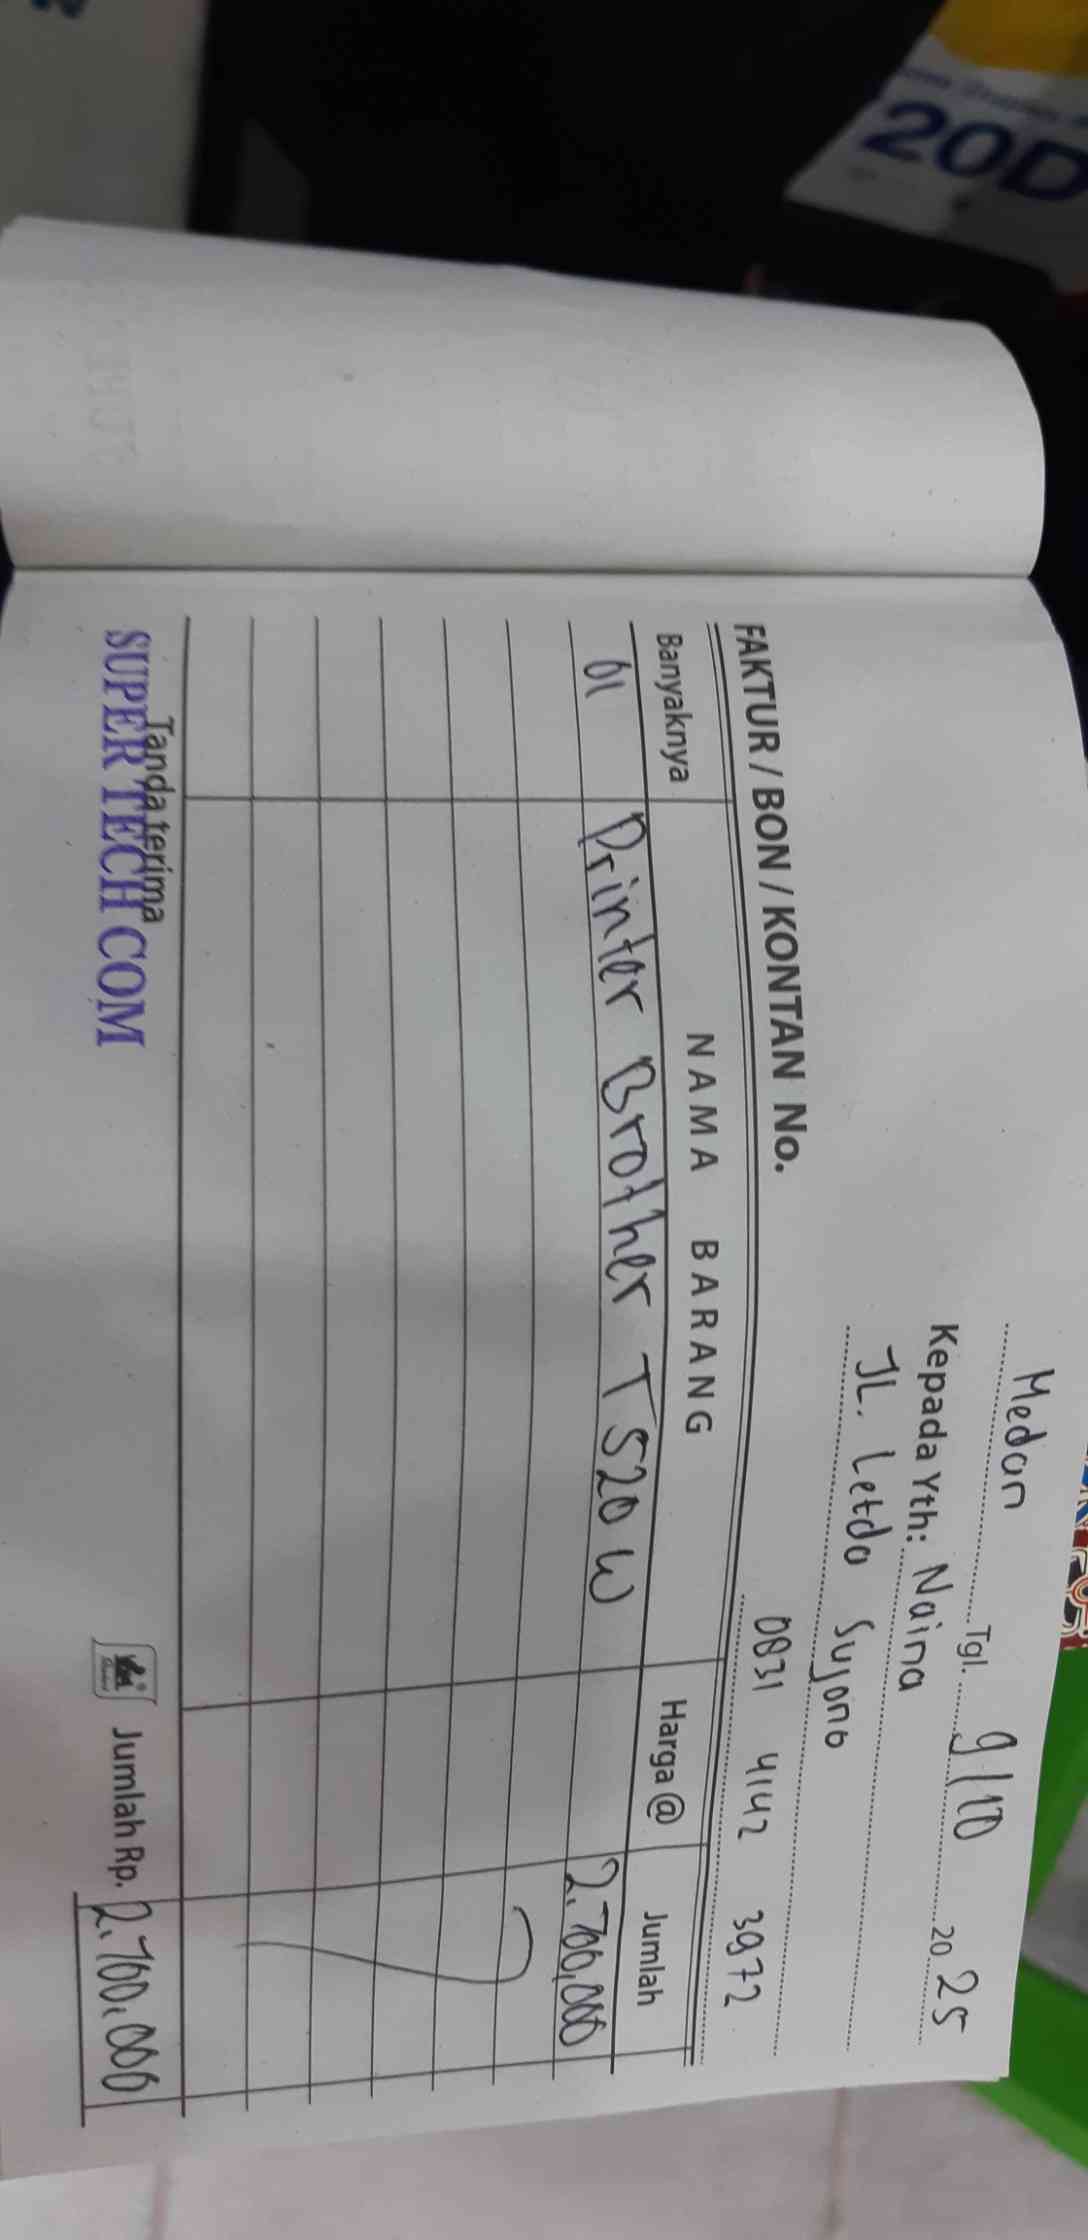 20D
Medan Tgl. 9/10 2025
Kepada Yth: Naina
JL. Letda Sujono
0831 4142 3972
FAKTUR / BON / KONTAN No.
Banyaknya NAMA BARANG Harga @ Jumlah
01 Printer Brother T520W 2.700,000
Tanda terima Jumlah Rp. 2.700.000
SUPER TECH COM